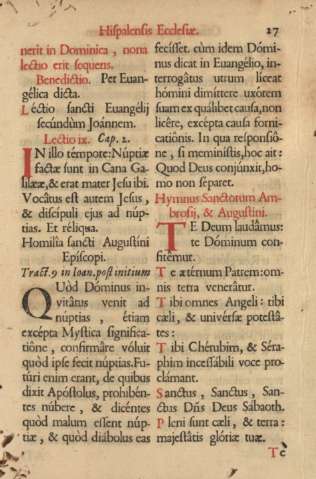 Hispalensis Ecclesiæ. 27
nerit in Dominica, nona
lectio erit sequens.
Benedictio. Per Euan-
gélica dicta.
Léctio sancti Euangélij
secúndùm Joánnem.
Lectio ix. Cap. 2.
IN illo témpore: Núptiæ
factæ sunt in Cana Ga-
lilææ, & erat mater Jesu ibi.
Vocâtus est autem Jesus,
& discípuli ejus ad núp-
tias. Et réliqua.
Homilía sancti Augustini
Epíscopi.
Tract. 9 in Ioan. post initium
QUòd Dóminus in-
vitâtus venit ad
núptias, étiam
excépta Mystica significa-
tiône, confirmâre vóluit
quòd ipse fecit núptias. Fu-
túri enim erant, de quibus
dixit Apóstolus, prohibén-
tes núbere, & dicéntes
quòd malum essent núp-
tiæ, & quòd diábolus eas
fecísset. cùm idem Dómi-
nus dicat in Euangélio, in-
terrogâtus utrum líceat
hómini dimíttere uxôrem
suam ex quâlibet causa, non
licêre, excépta causa forni-
catiônis. In qua responsiô-
ne, si meminístis, hoc ait:
Quod Deus conjúnxit, ho-
mo non séparet.
Hymnus Sanctorum Am-
brosij, & Augustini.
TE Deum laudâmus:
te Dóminum con-
sitêmur.
Te ætérnum Patrem: om-
nis terra venerâtur.
Tibi omnes Angeli: tibi
cæli, & univérsæ potestâ-
tes:
Tibi Chérubim, & Séra-
phim incessâbili voce pro-
clâmant.
Sanctus, Sanctus, San-
ctus Dñs Deus Sábaoth.
Pleni sunt cæli, & terra:
majestâtis glóriæ tuæ.
Te